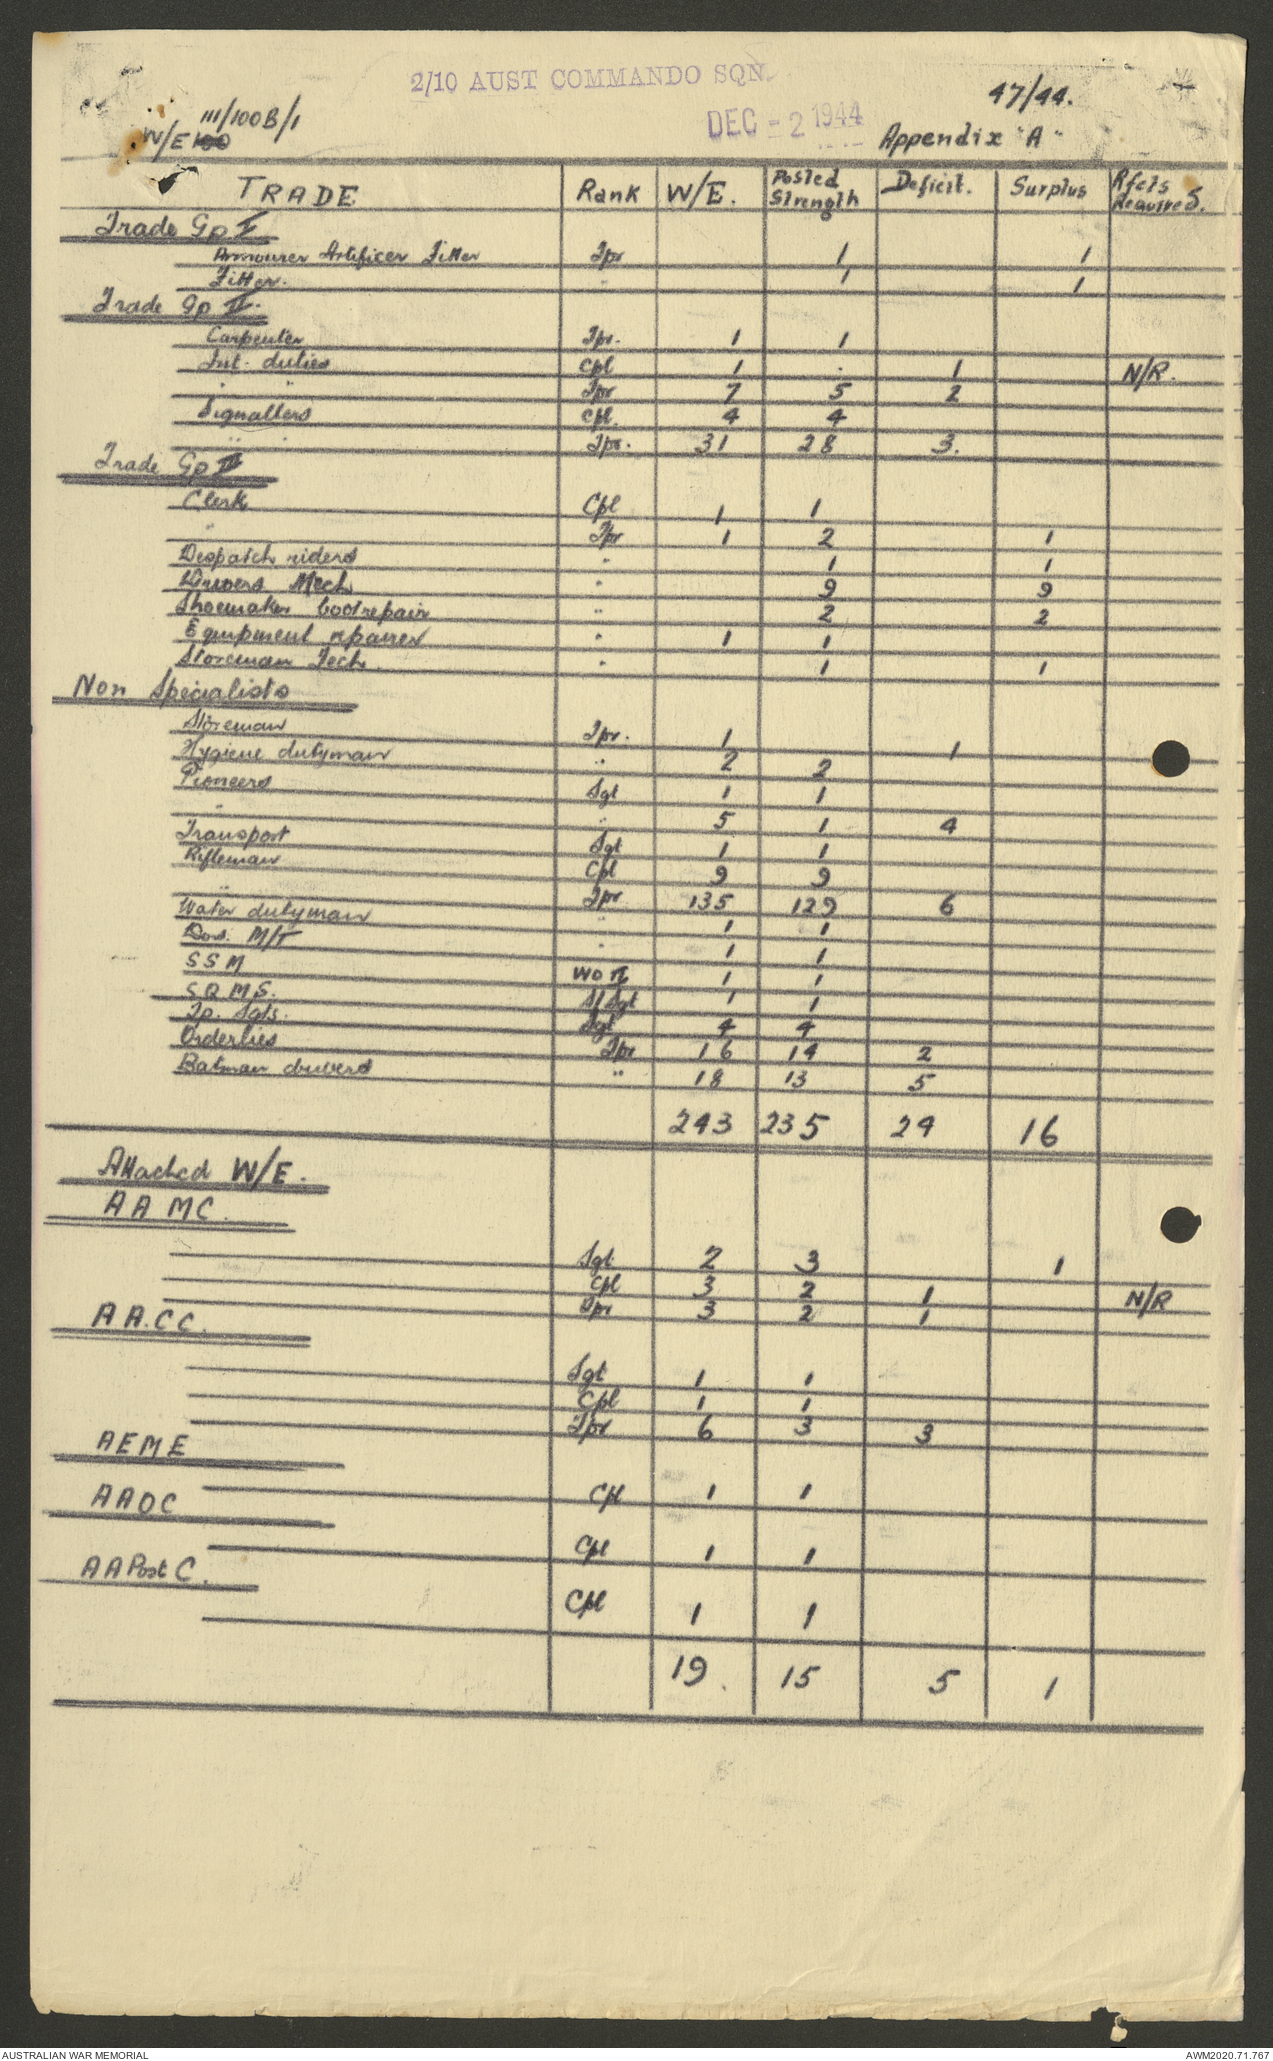 2/10 AUST COMMANDO SQN.
47/44.
111/100B/1
DEC - 2 1944
W/E 100
Appendix "A"
TRADE Rank W/E. Posted Strength Deficit. Surplus Rfcts Required.
Trade Gp I
Armourer Artificer Fitter Tpr 1 1
Fitter. " 1 1
Trade Gp II.
Carpenter Tpr. 1 1
Int. duties Cpl 1 . 1 N/R.
" " Tpr 7 5 2
Signallers Cpl. 4 4
" " Tpr. 31 28 3.
Trade Gp III
Clerk Cpl 1 1
" Tpr 1 2 1
Despatch riders " 1 1
Drivers Mech " 9 9
Shoemaker bootrepair " 2 2
Equipment repairer " 1 1
Storeman Tech. " 1 1
Non Specialists
Storeman Tpr. 1 1
Hygiene dutyman " 2 2
Pioneers Sgt 1 1
" " 5 1 4
Transport Sgt 1 1
Rifleman Cpl 9 9
" Tpr 135 129 6
Water dutyman " 1 1
M/T " 1 1
SSM WO II 1 1
SQMS. S/Sgt 1 1
Tp. Sgts. Sgt 4 4
Orderlies Tpr 16 14 2
Batman drivers " 18 13 5
243 235 24 16
Attached W/E.
AAMC.
Sgt 2 3 1
Cpl 3 2 1 N/R
Tpr 3 2 1
AA.CC.
Sgt 1 1
Cpl 1 1
Tpr 6 3 3
AEME
Cpl 1 1
AAOC
Cpl 1 1
AAPost C.
Cpl 1 1
19. 15 5 1
AUSTRALIAN WAR MEMORIAL
AWM2020.71.767